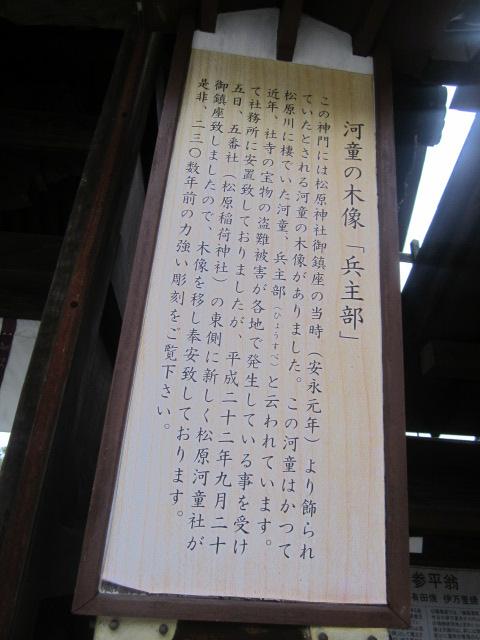 河童の木像「兵主部」
この神門には松原神社御鎮座の当時（安永元年）より飾られ
ていたとされる河童の木像がありました。この河童はかつて
松原川に棲でいた河童、兵主部（ひょうすべ）と云われています。
近年、社寺の宝物の盗難被害が各地で発生している事を受け
て社務所に安置致しておりましたが、平成二十二年九月二十
五日、五番社（松原稲荷神社）の東側に新しく松原河童社が
御鎮座致しましたので、木像を移し奉安致しております。
是非、二三〇数年前の力強い彫刻をご覧下さい。
参平翁
有田焼 伊万里焼